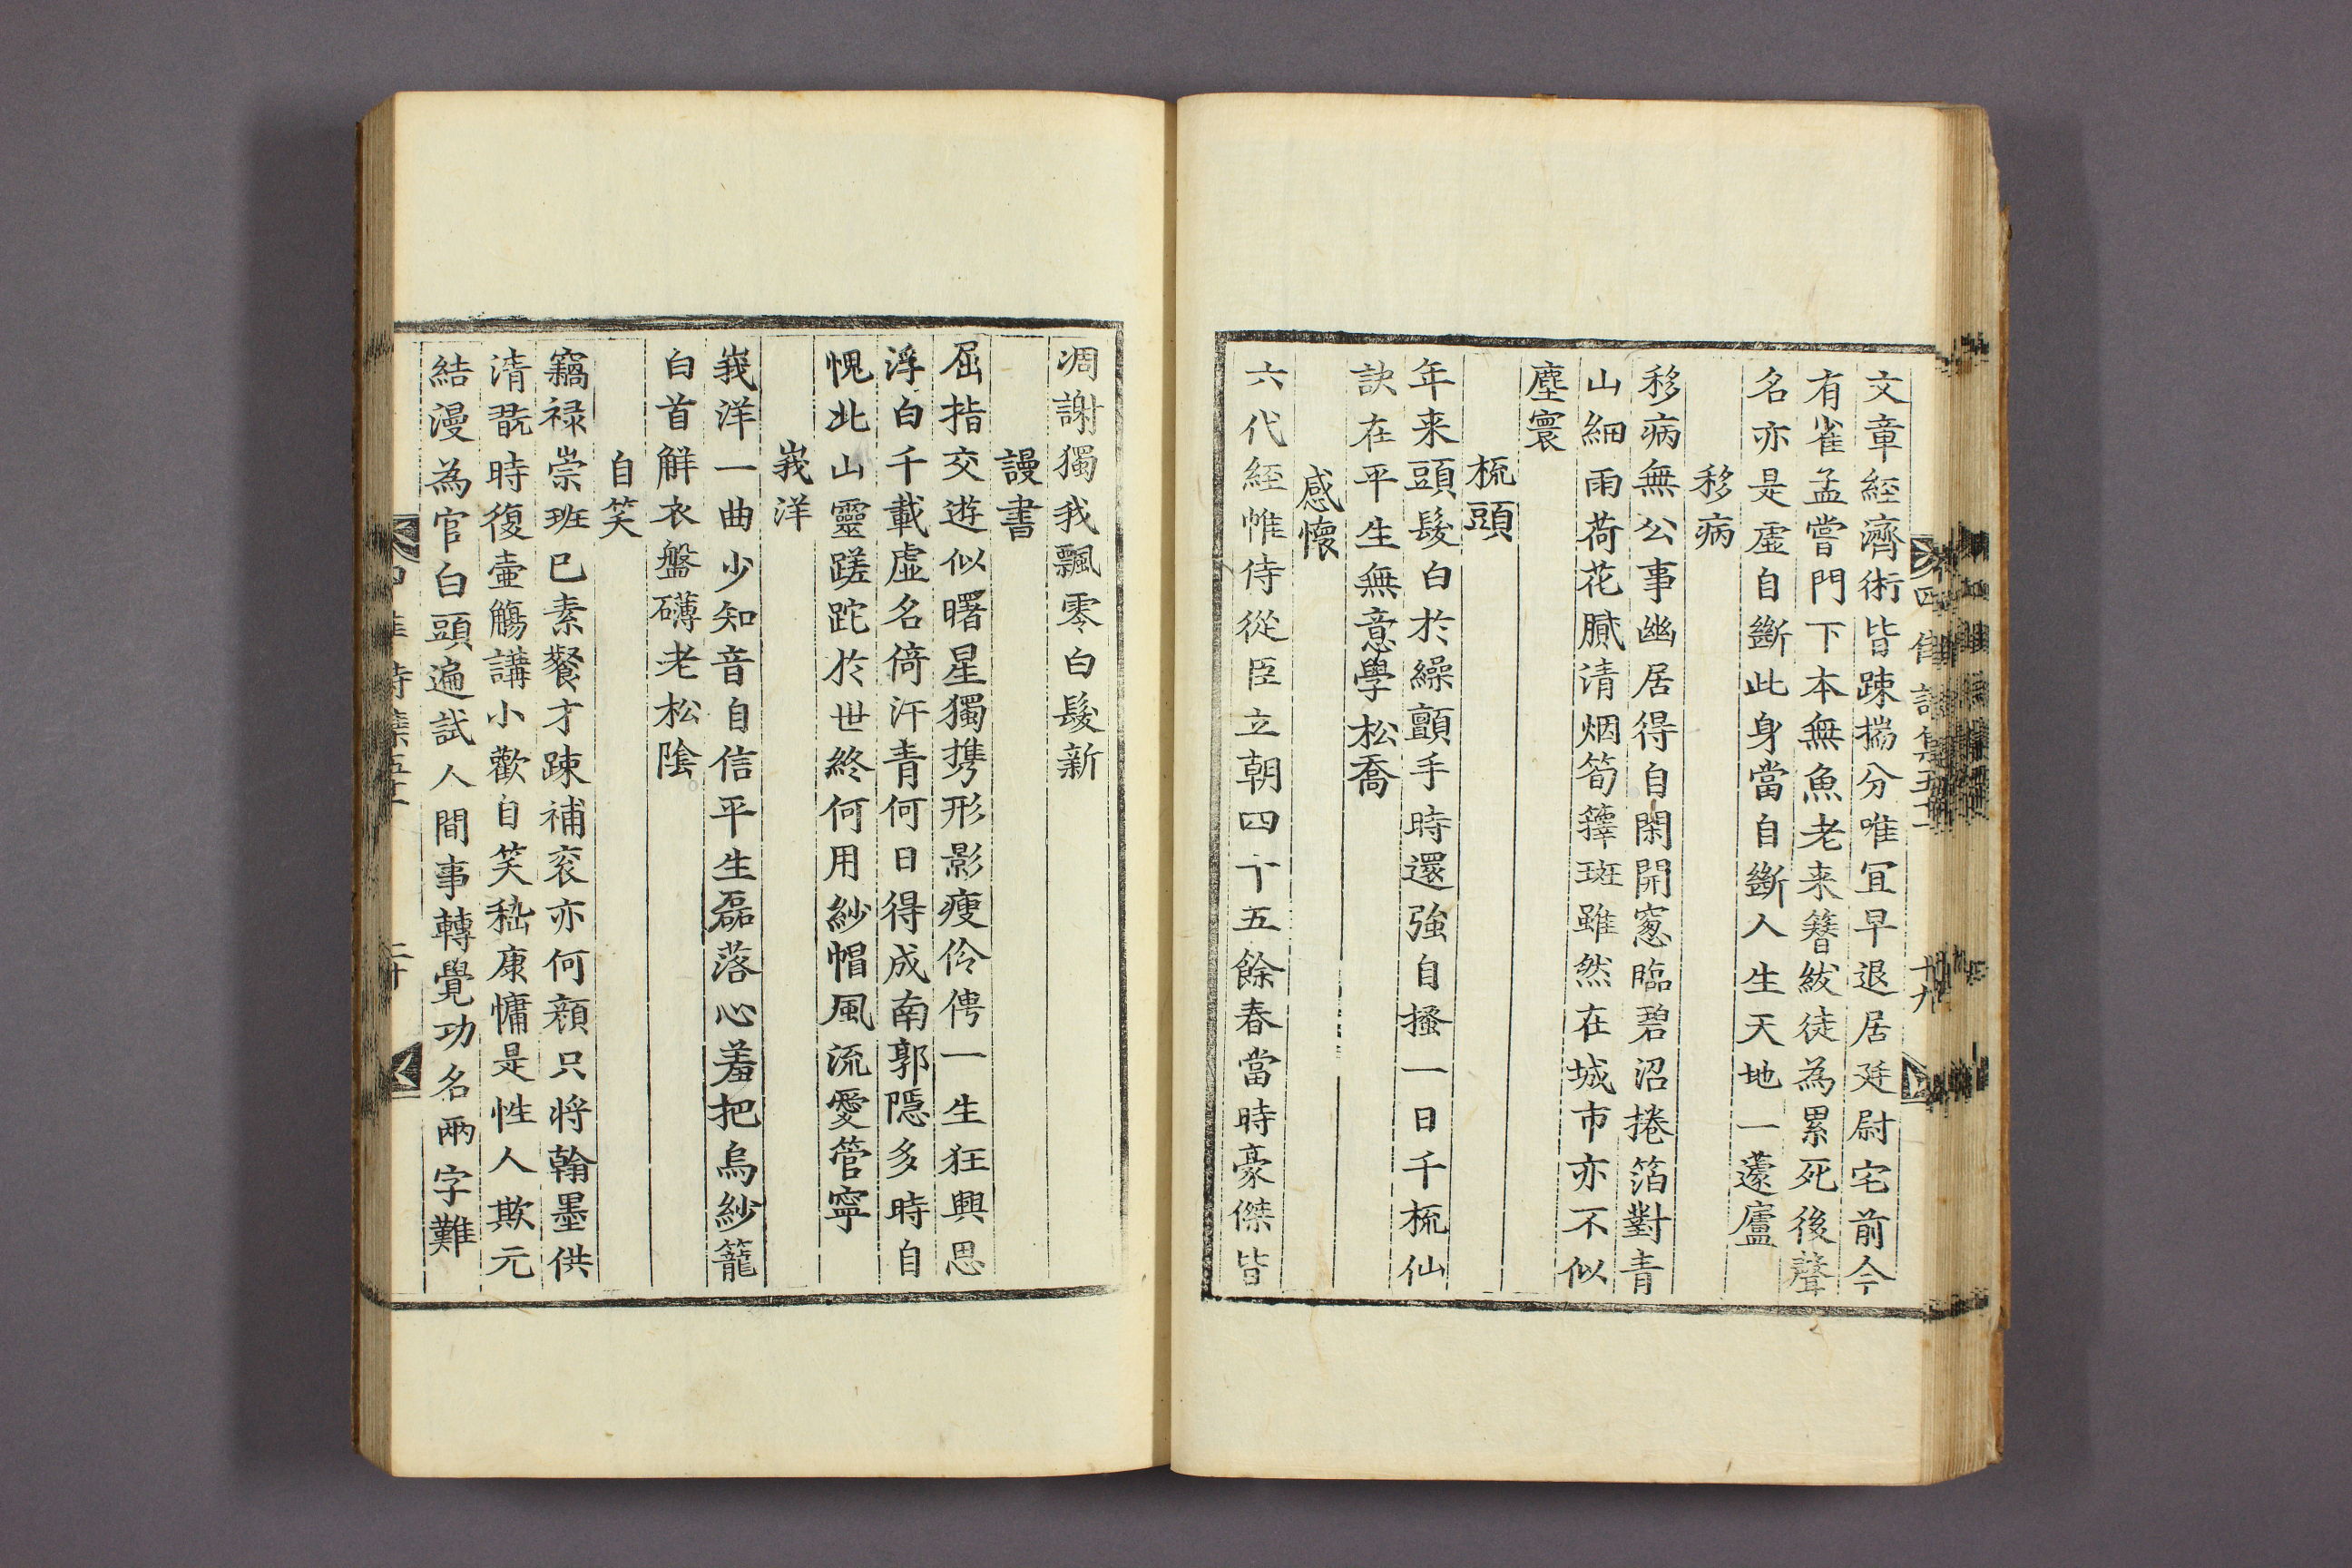 文章經濟術皆踈揣分唯宜早退居廷尉宅前今
有雀孟嘗門下本無魚老来簪紱徒為累死後聲
名亦是虛自斷此身當自斷人生天地一蘧廬
移病
移病無公事幽居得自閑開窓臨碧沼捲箔對青
山細雨荷花膩清烟筍籜斑雖然在城市亦不似
塵寰
梳頭
年来頭髮白於繰顫手時還強自搔一日千梳仙
訣在平生無意學松喬
感懷
六代經帷侍從臣立朝四十五餘春當時豪傑皆
十九
凋謝獨我飄零白髮新
謾書
屈指交遊似曙星獨携形影瘦伶俜一生狂興思
浮白千載虛名倚汗青何日得成南郭隱多時自
愧北山靈蹉跎於世終何用紗帽風流愛管寧
峩洋
峩洋一曲少知音自信平生磊落心羞把烏紗籠
白首解衣盤礴老松陰
自笑
竊祿崇班已素餐才踈補衮亦何顔只将翰墨供
清翫時復壷觴講小歡自笑嵇康慵是性人欺元
結漫為官白頭遍試人間事轉覺功名兩字難